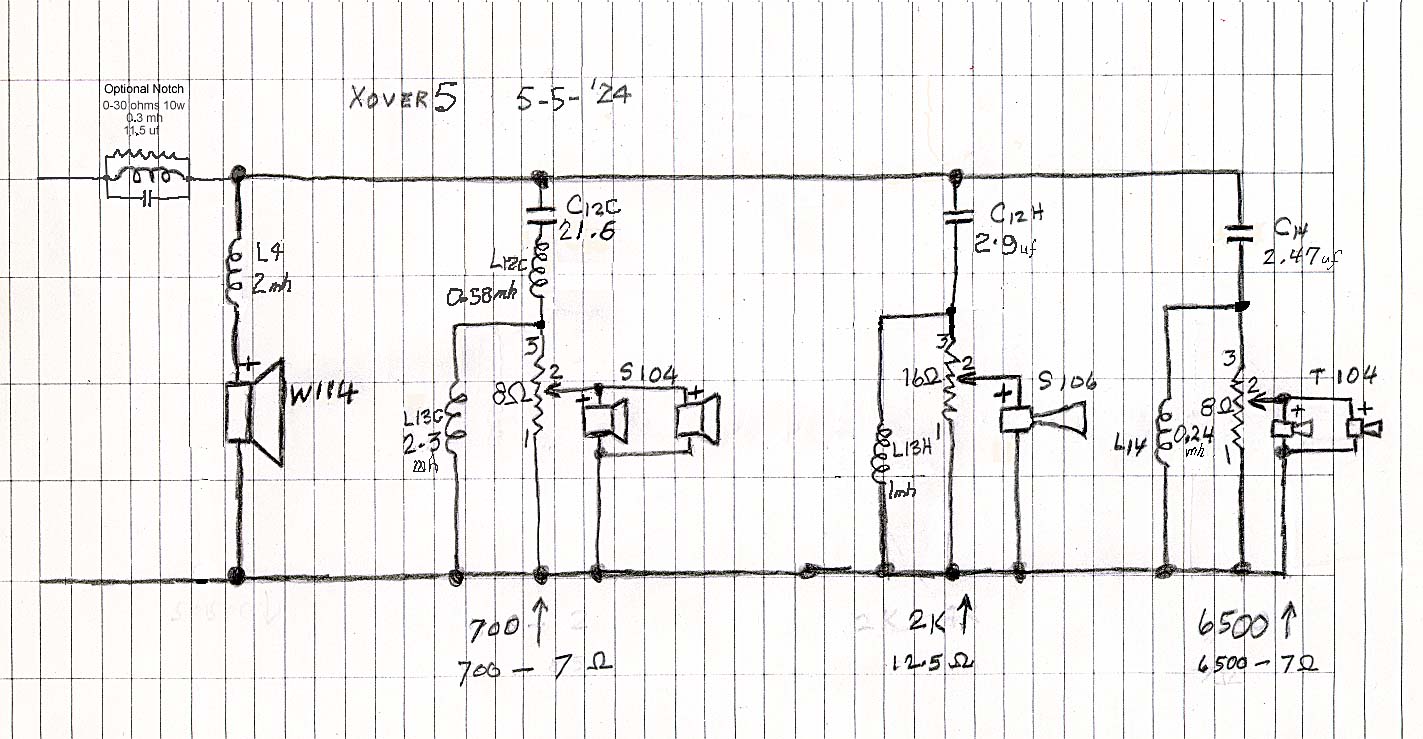 Optional Notch
0-30 ohms 10w
0.3 mh
11.5 uf
XOVER 5 5-5-'24
L4
2mh
+
W114
C12C
21.6
L12C
0.58mh
L13C
2.3
mh
3
8Ω
2
1
+
S104
+
C12H
2.9uf
3
16Ω
2
1
L13H
1mh
+
S106
C14
2.47uf
3
8Ω
2
1
L14
0.24
mh
T104
+
+
700 ↑
700 - 7 Ω
2K ↑
12.5 Ω
6500 ↑
6500 - 7Ω